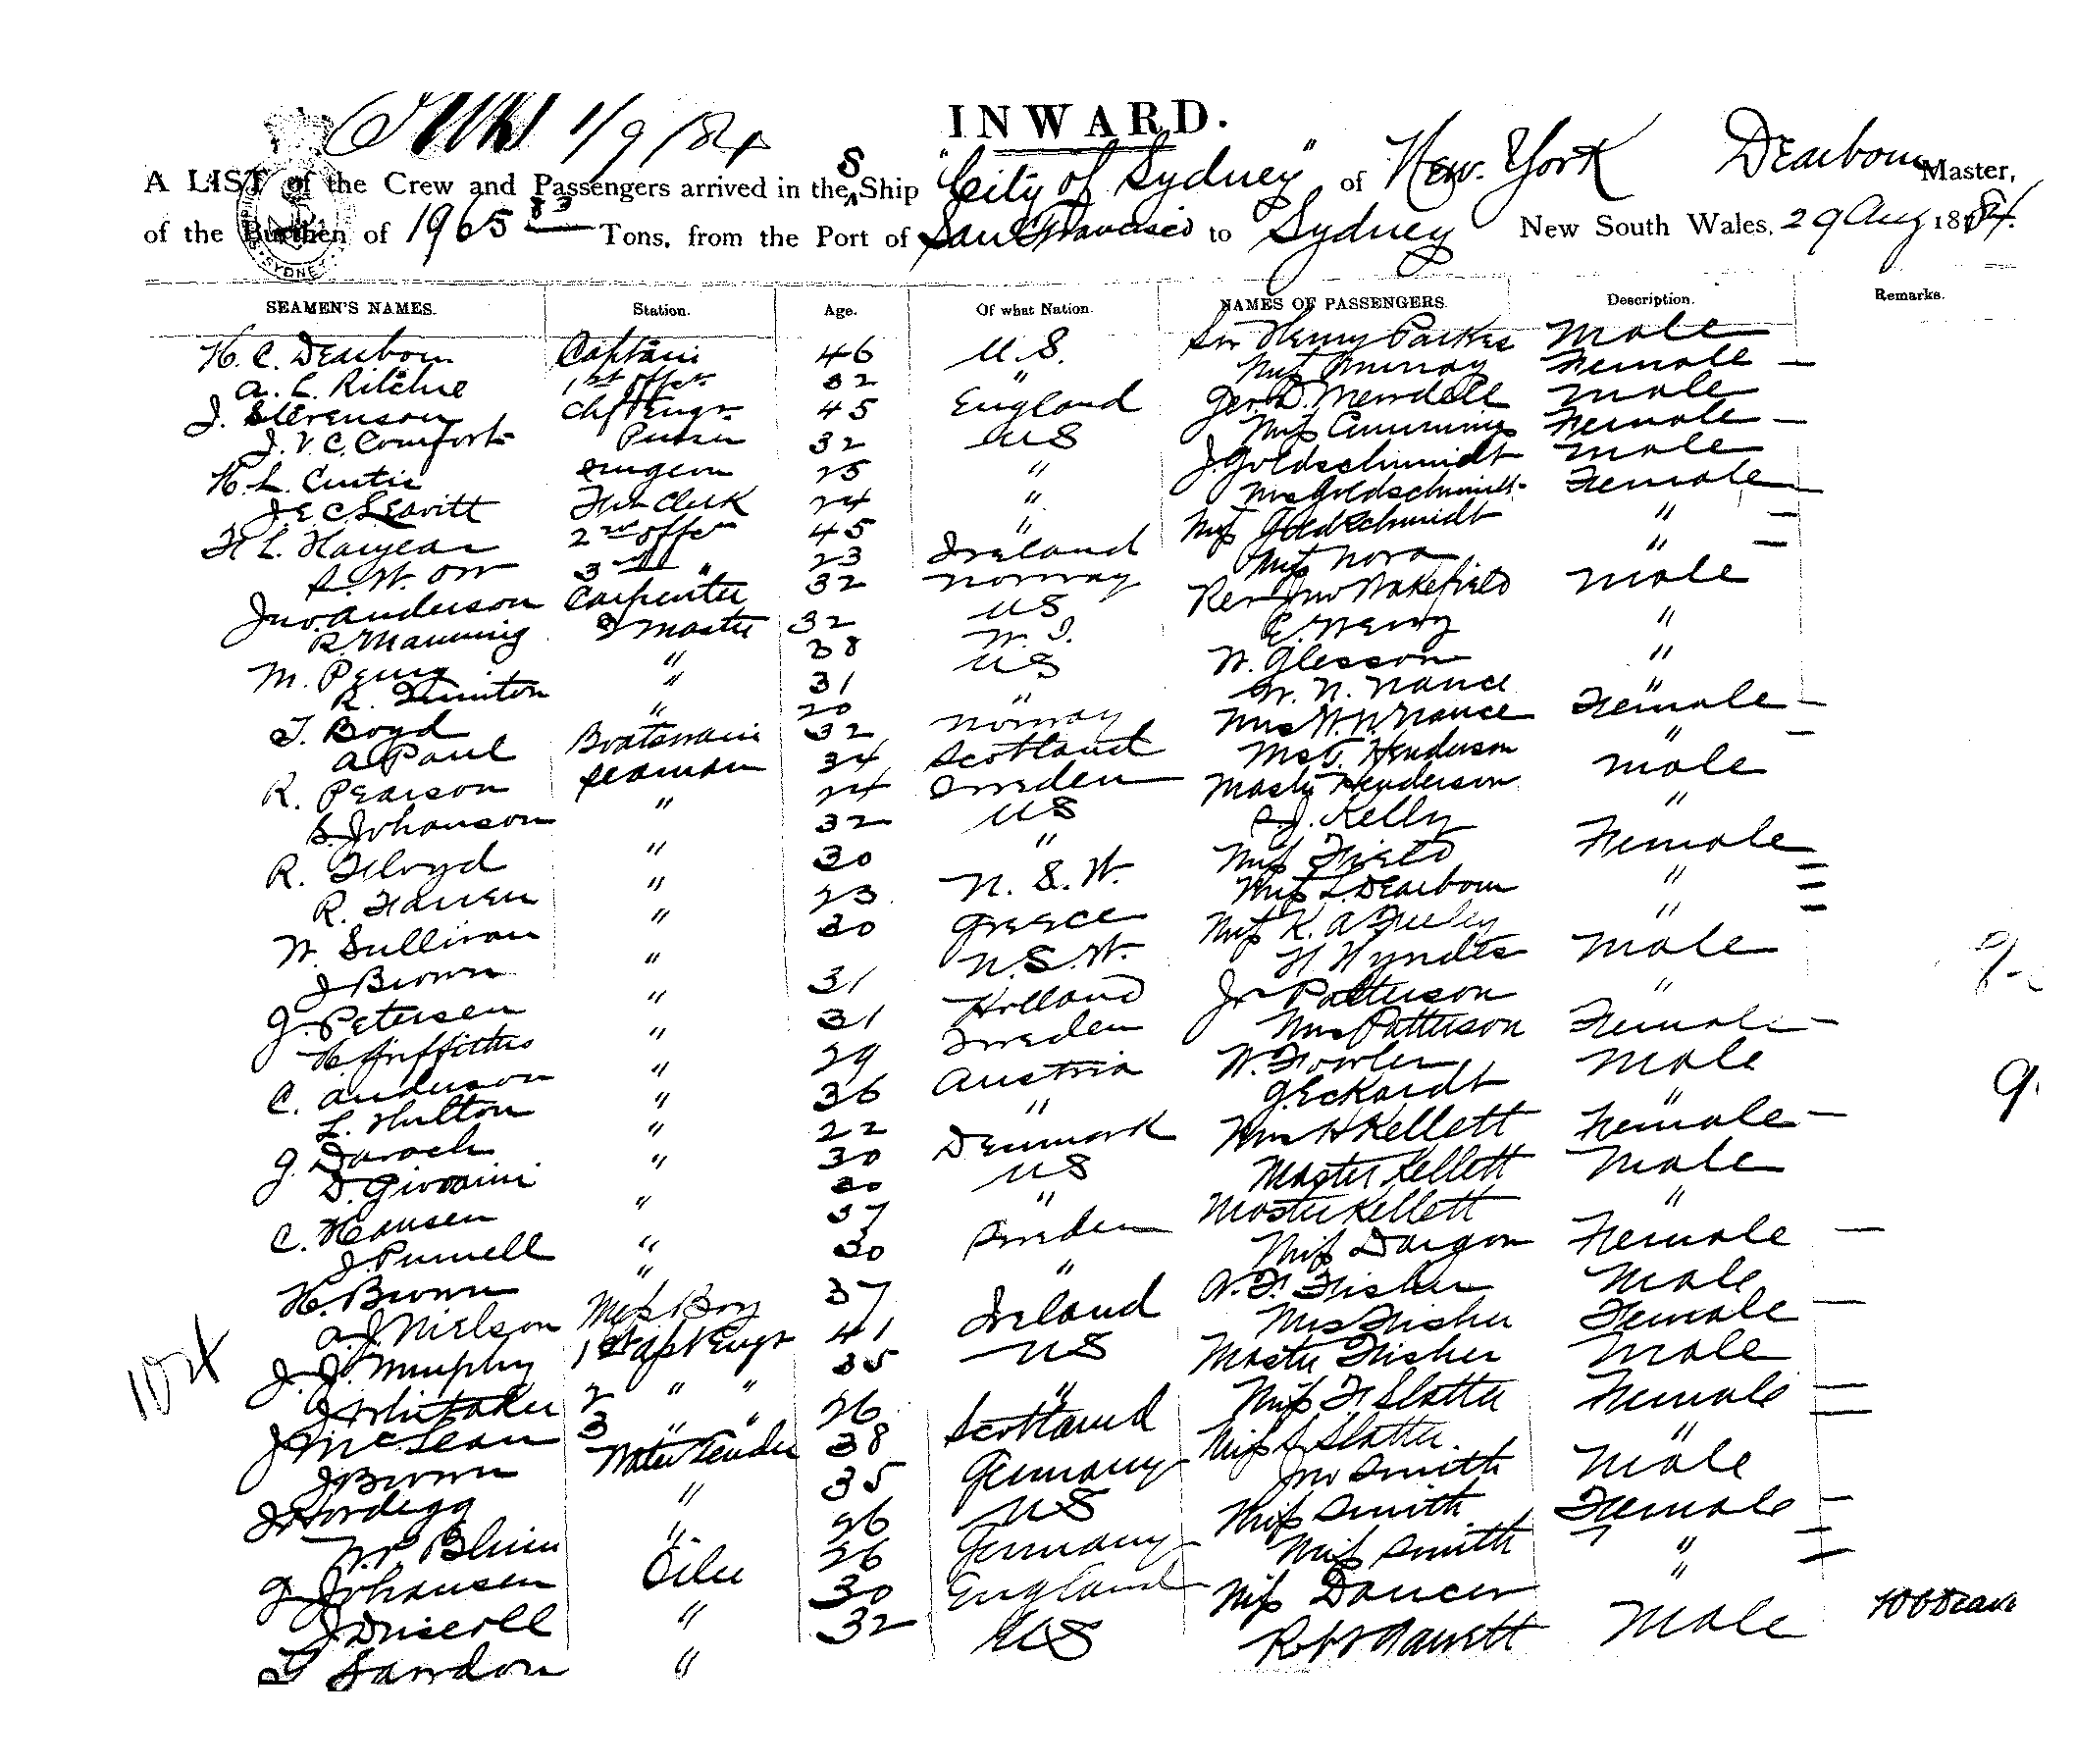 1/9/84
INWARD.
A LIST of the Crew and Passengers arrived in the S Ship "City of Sydney" of New York Dearborn Master,
of the Burthen of 1965 83 Tons, from the Port of San Francisco to Sydney New South Wales, 29 Aug 1884.
SEAMEN'S NAMES. Station. Age. Of what Nation. NAMES OF PASSENGERS. Description. Remarks.
H. C. Dearborn Captain 46 U.S. Sir Henry Parkes Male
A. L. Ritchie 1st offcr 32 " Miss Murray Female —
J. Stevenson Chf Engr 45 England Geo. D. Mendell Male
J. V. C. Comfort Purser 32 US Miss Cummings Female —
H. L. Curtis Surgeon 25 " J. Goldschmidt Male
J. E. C. Leavitt Frt Clerk 24 " Mrs Goldschmidt Female —
H. L. 2nd offcr 45 " Miss Goldschmidt " —
S. W. Orr 3rd " 23 Ireland Miss Nora " —
Jno. Anderson Carpenter 32 Norway Rev Jno Wakefield Male
R. Manning Q Master 32 US E. "
M. Perry " 38 W. I. W. Glesson "
R. " 31 US W. N. Nance "
T. Boyd " 20 " Mrs W. N. Nance Female —
A Paul Boatswain 32 Norway Mrs T. Henderson " —
R. Pearson Seaman 34 Scotland Master Henderson Male
S. Johanson " 24 Sweden S. J. Kelly "
R. Floyd " 32 US Miss Field Female —
R. Hansen " 30 " Miss L. Dearborn " —
W. Sullivan " 23 N. S. W. Miss K. A Feeley " —
J Brown " 30 Greece H Wyndes Male
J. Petersen " 31 N. S. W. Jno Patterson "
H. Griffiths " 31 Holland Mrs Patterson Female —
C. Anderson " 29 Sweden W. Fowler Male
L. Hulton " 36 Austria G. Eckardt "
J. Daroch " 22 " Mrs H Kellett Female —
D. Giovaini " 30 Denmark Master Kellett Male
C. Hansen " 20 US Master Kellett "
J. Purnell " 37 " Miss Dargon Female —
H. Brown " 30 Sweden W. F. Fisher Male
A. J. Nielson Mess Boy 37 " Mrs Fisher Female —
J. J. Murphy 1st Asst Engr 41 Ireland Master Fisher Male
J Whitaker 2 " " 35 US Miss F. Slatter Female —
J McLean 3 " " 26 " Miss S Slatter " —
J. Brown Water Tender 38 Scotland Jno Smith Male
J Hordegg " 35 Germany Miss Smith Female —
W. P. Blum " 26 US Miss Smith " —
G Johansen Oiler 26 Germany Miss Dancer " —
J. Driscoll " 30 England Robt Male
Sandon " 32 US